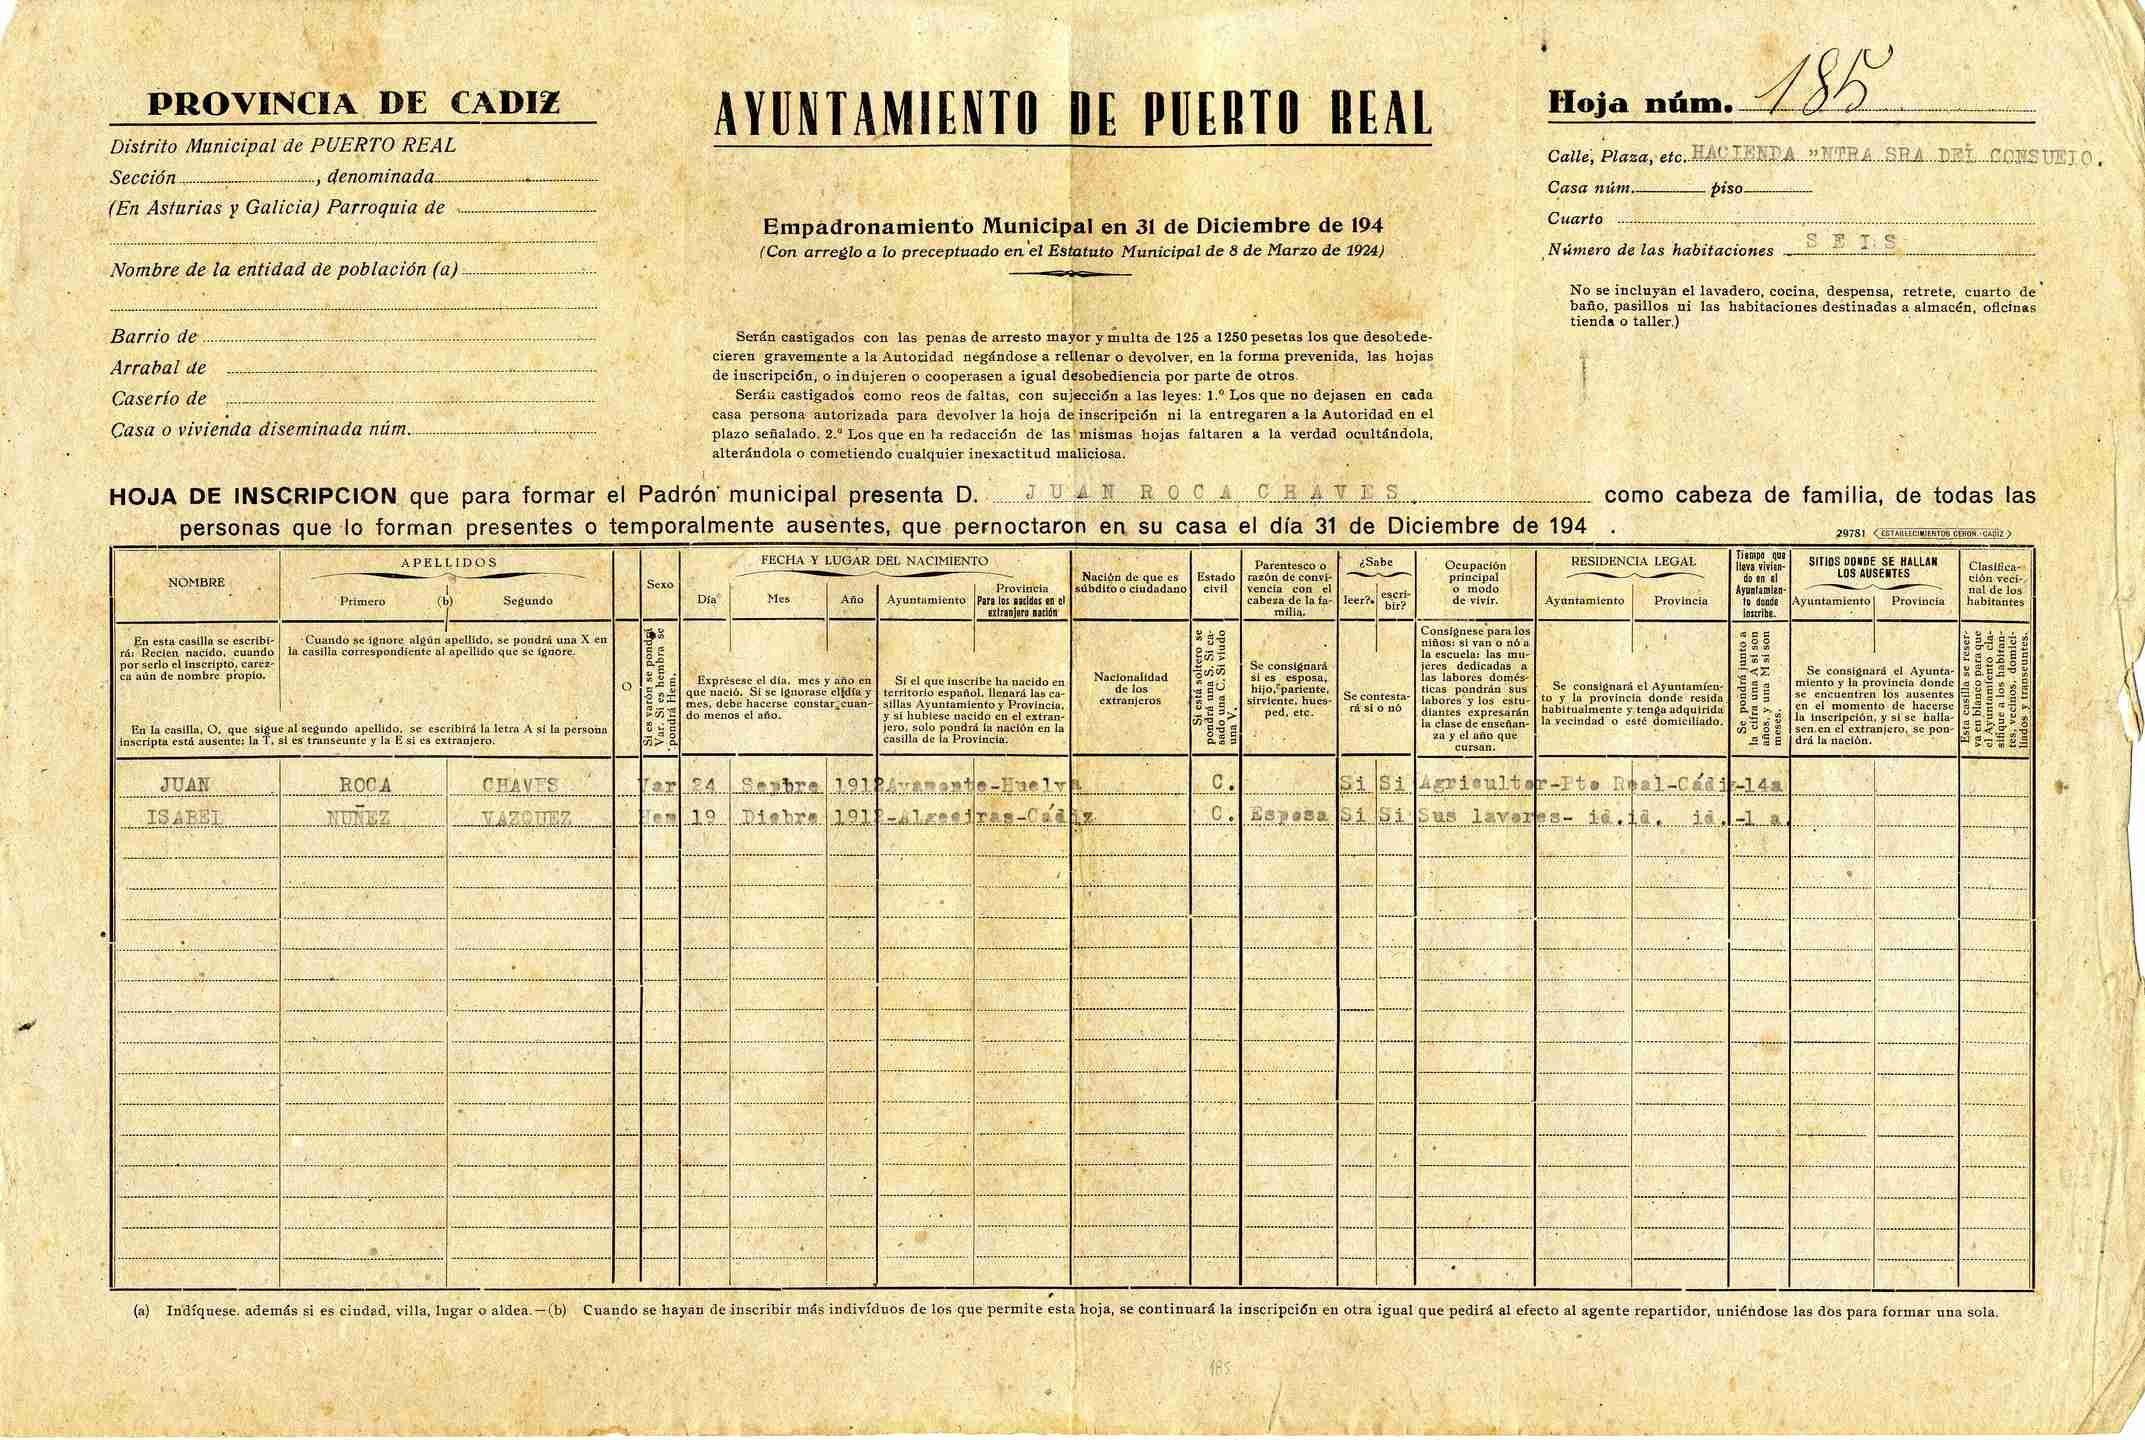 PROVINCIA DE CADIZ
Distrito Municipal de PUERTO REAL
Sección , denominada
(En Asturias y Galicia) Parroquia de
Nombre de la entidad de población (a)
Barrio de
Arrabal de
Caserío de
Casa o vivienda diseminada núm.
AYUNTAMIENTO DE PUERTO REAL
Empadronamiento Municipal en 31 de Diciembre de 194
(Con arreglo a lo preceptuado en el Estatuto Municipal de 8 de Marzo de 1924)
Serán castigados con las penas de arresto mayor y multa de 125 a 1250 pesetas los que desobede-
cieren gravemente a la Autoridad negándose a rellenar o devolver, en la forma prevenida, las hojas
de inscripción, o indujeren o cooperasen a igual desobediencia por parte de otros.
Serán castigados como reos de faltas, con sujección a las leyes: 1.º Los que no dejasen en cada
casa persona autorizada para devolver la hoja de inscripción ni la entregaren a la Autoridad en el
plazo señalado. 2.º Los que en la redacción de las mismas hojas faltaren a la verdad ocultándola,
alterándola o cometiendo cualquier inexactitud maliciosa.
Hoja núm. 185
Calle, Plaza, etc. HACIENDA "NTRA SRA DEL CONSUELO.
Casa núm. piso
Cuarto
Número de las habitaciones SEIS
No se incluyan el lavadero, cocina, despensa, retrete, cuarto de
baño, pasillos ni las habitaciones destinadas a almacén, oficinas
tienda o taller.)
HOJA DE INSCRIPCION que para formar el Padrón municipal presenta D. JUAN ROCA CHAVES. como cabeza de familia, de todas las
personas que lo forman presentes o temporalmente ausentes, que pernoctaron en su casa el día 31 de Diciembre de 194 .
29781 ESTABLECIMIENTOS CERON.-CADIZ
NOMBRE
APELLIDOS
Primero (b) Segundo
Sexo
FECHA Y LUGAR DEL NACIMIENTO
Día Mes Año Ayuntamiento
Provincia
Para los nacidos en el
extranjero nación
Nación de que es
súbdito o ciudadano
Estado
civil
Parentesco o
razón de convi-
vencia con el
cabeza de la fa-
milia.
¿Sabe
leer? escri-
bir?
Ocupación
principal
o modo
de vivir.
RESIDENCIA LEGAL
Ayuntamiento Provincia
Tiempo que
lleva vivien-
do en el
Ayuntamien-
to donde
inscribe.
SITIOS DONDE SE HALLAN
LOS AUSENTES
Ayuntamiento Provincia
Clasifica-
ción veci-
nal de los
habitantes
En esta casilla se escribi-
rá: Recien nacido, cuando
por serlo el inscripto, carez-
ca aún de nombre propio.
Cuando se ignore algún apellido, se pondrá una X en
la casilla correspondiente al apellido que se ignore.
En la casilla, O, que sigue al segundo apellido, se escribirá la letra A si la persona
inscripta está ausente; la T, si es transeunte y la E si es extranjero.
O
Si es varón se pondrá
Var. Si es hembra se
pondrá Hem.
Exprésese el día, mes y año en
que nació. Si se ignorase el día y
mes, debe hacerse constar cuan-
do menos el año.
Si el que inscribe ha nacido en
territorio español, llenará las ca-
sillas Ayuntamiento y Provincia,
y si hubiese nacido en el extran-
jero, solo pondrá la nación en la
casilla de la Provincia.
Nacionalidad
de los
extranjeros
Si está soltero se
pondrá una S. Si ca-
sado una C. Si viudo
una V.
Se consignará
si es esposa,
hijo, pariente,
sirviente, hues-
ped, etc.
Se contesta-
rá si o nó
Consígnese para los
niños: si van o nó a
la escuela: las mu-
jeres dedicadas a
las labores domés-
ticas pondrán sus
labores y los estu-
diantes expresarán
la clase de enseñan-
za y el año que
cursan.
Se consignará el Ayuntamien-
to y la provincia donde resida
habitualmente y tenga adquirida
la vecindad o esté domiciliado.
Se pondrá junto a
la cifra una A si son
años, y una M si son
meses.
Se consignará el Ayunta-
miento y la provincia donde
se encuentren los ausentes
en el momento de hacerse
la inscripción, y si se halla-
sen en el extranjero, se pon-
drá la nación.
Esta casilla se reser-
va en blanco para que
el Ayuntamiento cla-
sifique a los habitan-
tes, vecinos, domici-
liados y transeuntes.
JUAN ROCA CHAVES Var 24 Sepbre 1912 Ayamonte-Huelva C. Si Si Agricultor-Pto Real-Cádiz-14a
ISABEL NUÑEZ VAZQUEZ Hem 19 Dicbre 1912-Algeciras-Cádiz C. Esposa Si Si Sus lavores- id.id. id.-1 a.
(a) Indíquese además si es ciudad, villa, lugar o aldea.—(b) Cuando se hayan de inscribir más indivíduos de los que permite esta hoja, se continuará la inscripción en otra igual que pedirá al efecto al agente repartidor, uniéndose las dos para formar una sola.
185